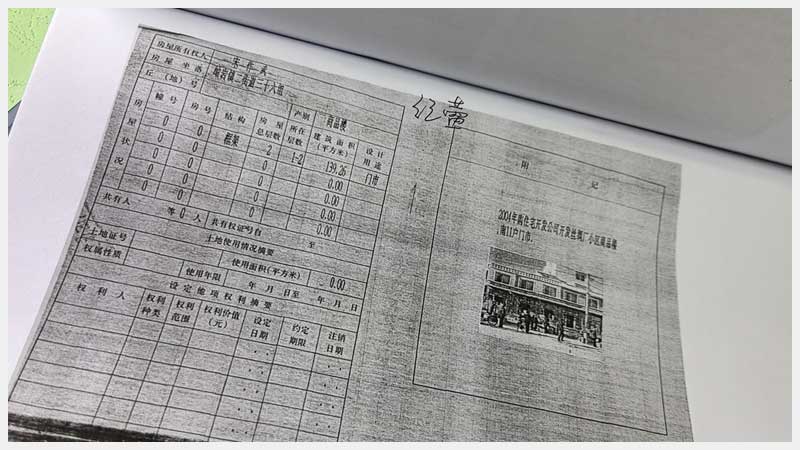 房屋所有权人
房屋坐落 二街道二十六组
丘（地）号 产别 商品楼
房屋状况
幢号 房号 结构 房屋总层数 所在层数 建筑面积（平方米） 设计用途
0 0 框架 2 1-2 139.26 门市
0 0 0 0.00
0 0 0 0.00
0 0 0 0.00
0 0 0 0.00
共有人 等0人 共有权证号自 至
土地使用情况摘要
土地证号 使用面积（平方米） 0.00
权属性质 使用年限 年 月 日至 年 月 日
设定他项权利摘要
权利人 权利种类 权利范围 权利价值（元） 设定日期 约定期限 注销日期
红壶
附 记
2004年购住宅开发公司开发丝绸厂小区商品楼
南11户门市.